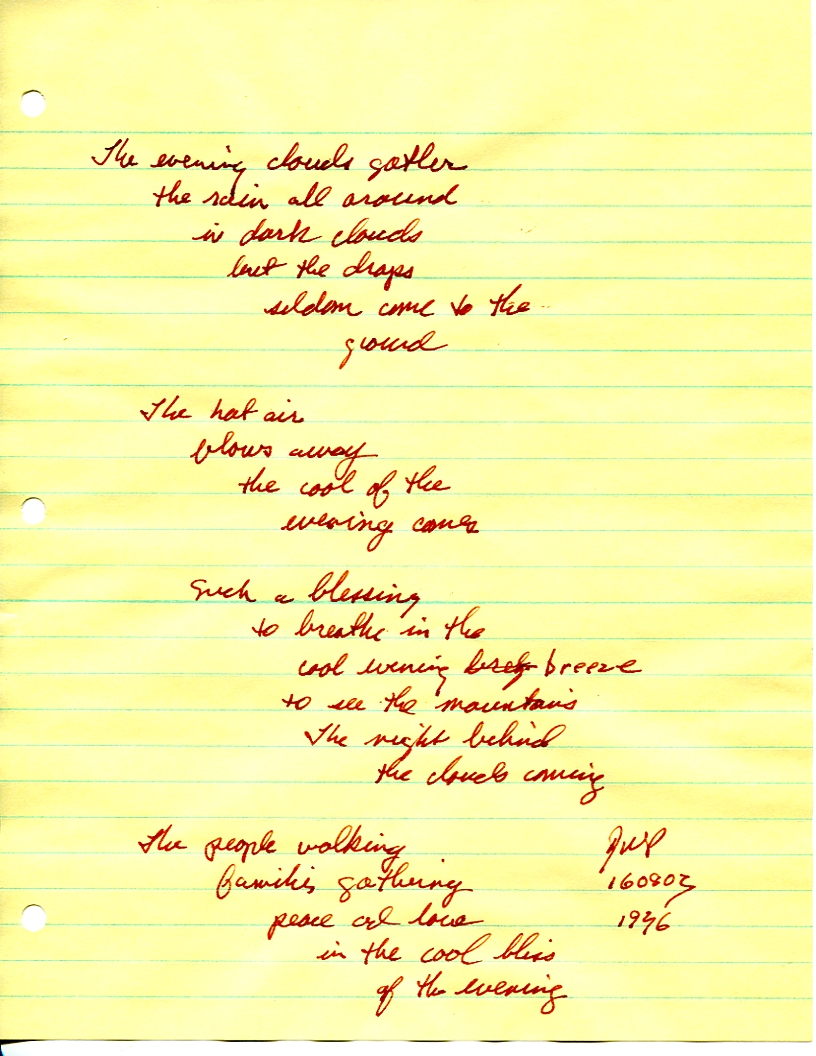 The evening clouds gather
the rain all around
in dark clouds
but the drops
seldom come to the
ground
The hot air
blows away
the cool of the
evening comes
Such a blessing
to breathe in the
cool evening breeze
to see the mountains
The night behind
the clouds coming
The people walking
families gathering
peace and love
in the cool bliss
of the evening
160803
1936